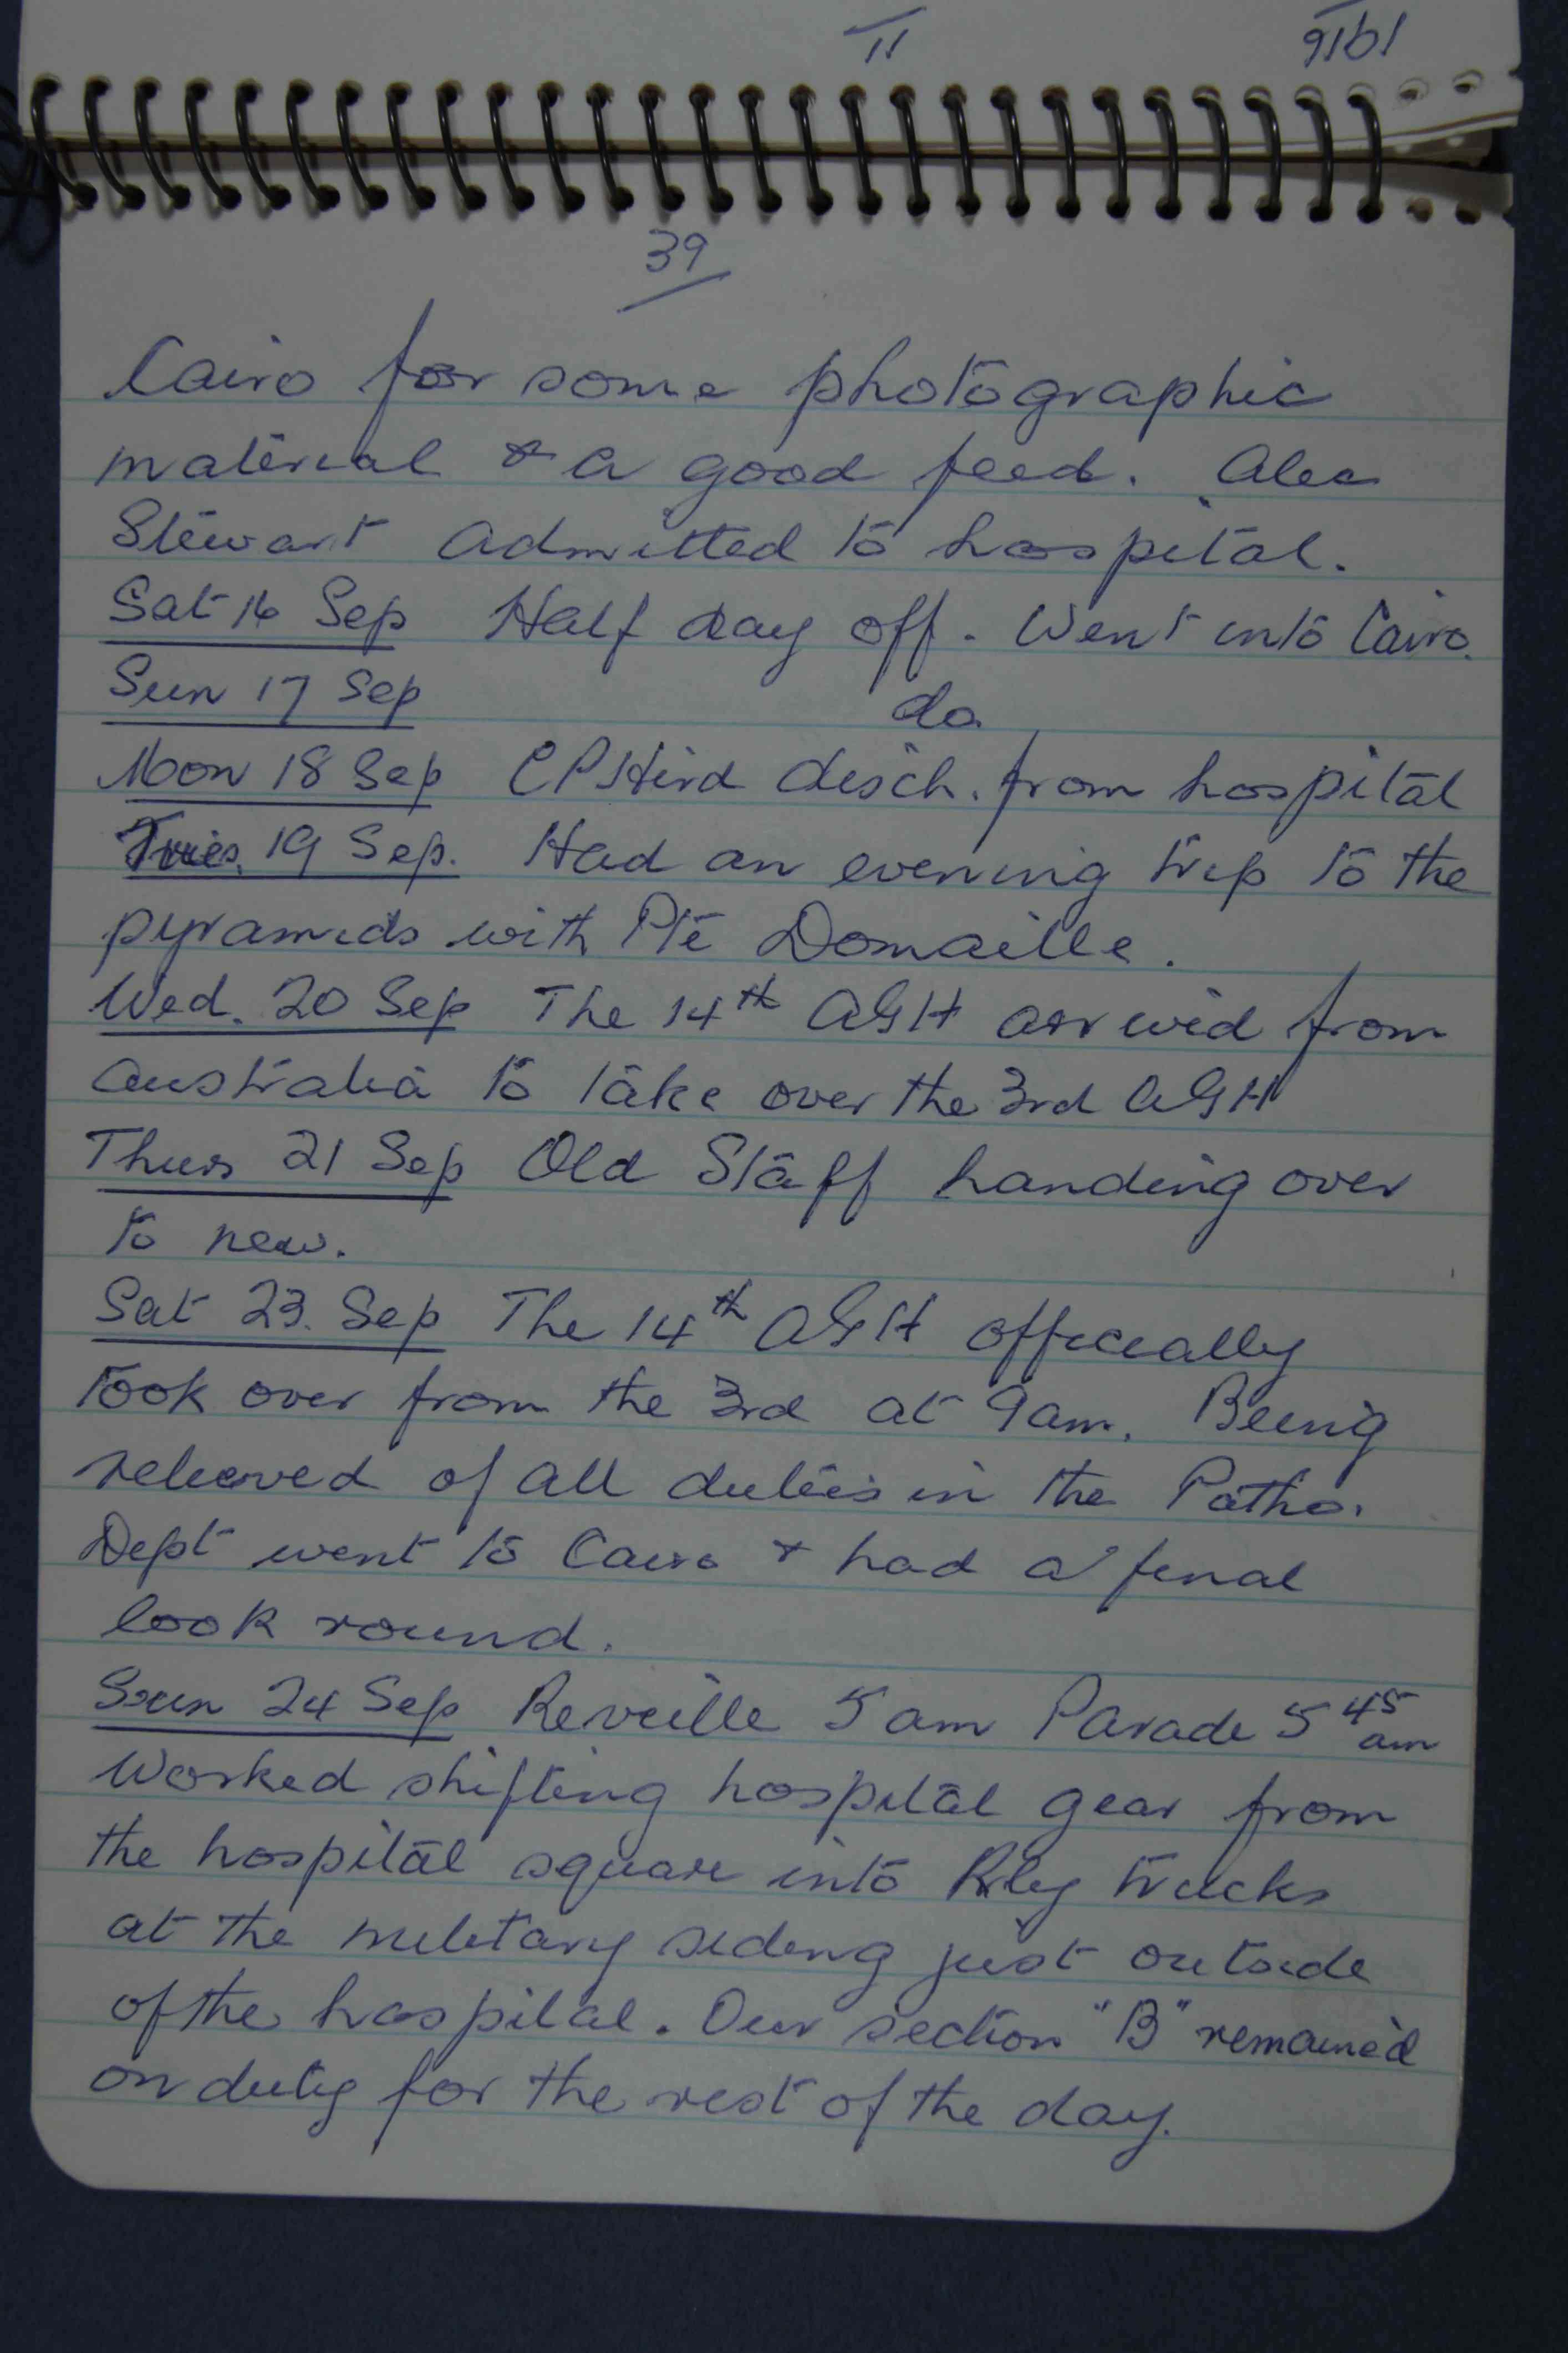 11 1916
39
Cairo for some photographic
material & a good feed. Alec
Stewart admitted to hospital.
Sat 16 Sep Half day off. Went into Cairo.
Sun 17 Sep do.
Mon 18 Sep C P Hird disch. from hospital
Tues. 19 Sep. Had an evening trip to the
pyramids with Pte Domaille.
Wed. 20 Sep The 14th AGH arrived from
Australia to take over the 3rd AGH
Thurs 21 Sep Old Staff handing over
to new.
Sat 23. Sep The 14th AGH officially
took over from the 3rd at 9am. Being
relieved of all duties in the Patho.
Dept went to Cairo & had a final
look round.
Sun 24 Sep Reveille 5 am Parade 5 45 am
Worked shifting hospital gear from
the hospital square into Rly trucks
at the military siding just outside
of the hospital. Our section "B" remained
on duty for the rest of the day.